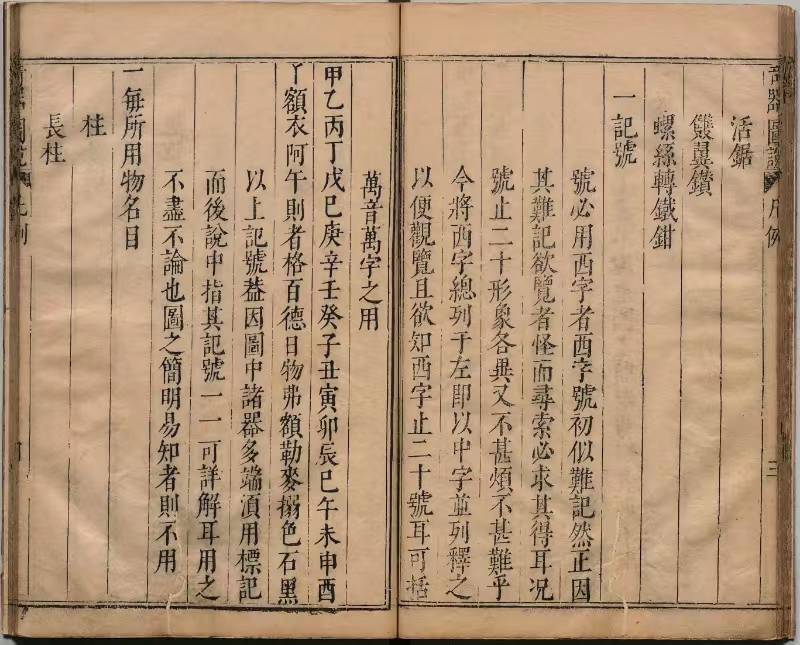 器圖說 凡例 三
活鋸
雙翼鑽
螺絲轉鐵鉗
一記號
號必用西字者西字號初似難記然正因
其難記欲覽者怪而尋索必求其得耳况
號止二十形象各異又不甚煩不甚難乎
今將西字總列于左即以中字並列釋之
以便觀覽且欲知西字止二十號耳可括
萬音萬字之用
甲乙丙丁戊己庚辛壬癸子丑寅卯辰巳午未申酉
丫額衣阿午則者格百德日物弗額勒麥搦色石黑
以上記號葢因圖中諸器多端湏用標記
而後說中指其記號一一可詳解耳用之
不盡不論也圖之簡明易知者則不用
一每所用物名目
柱
長柱